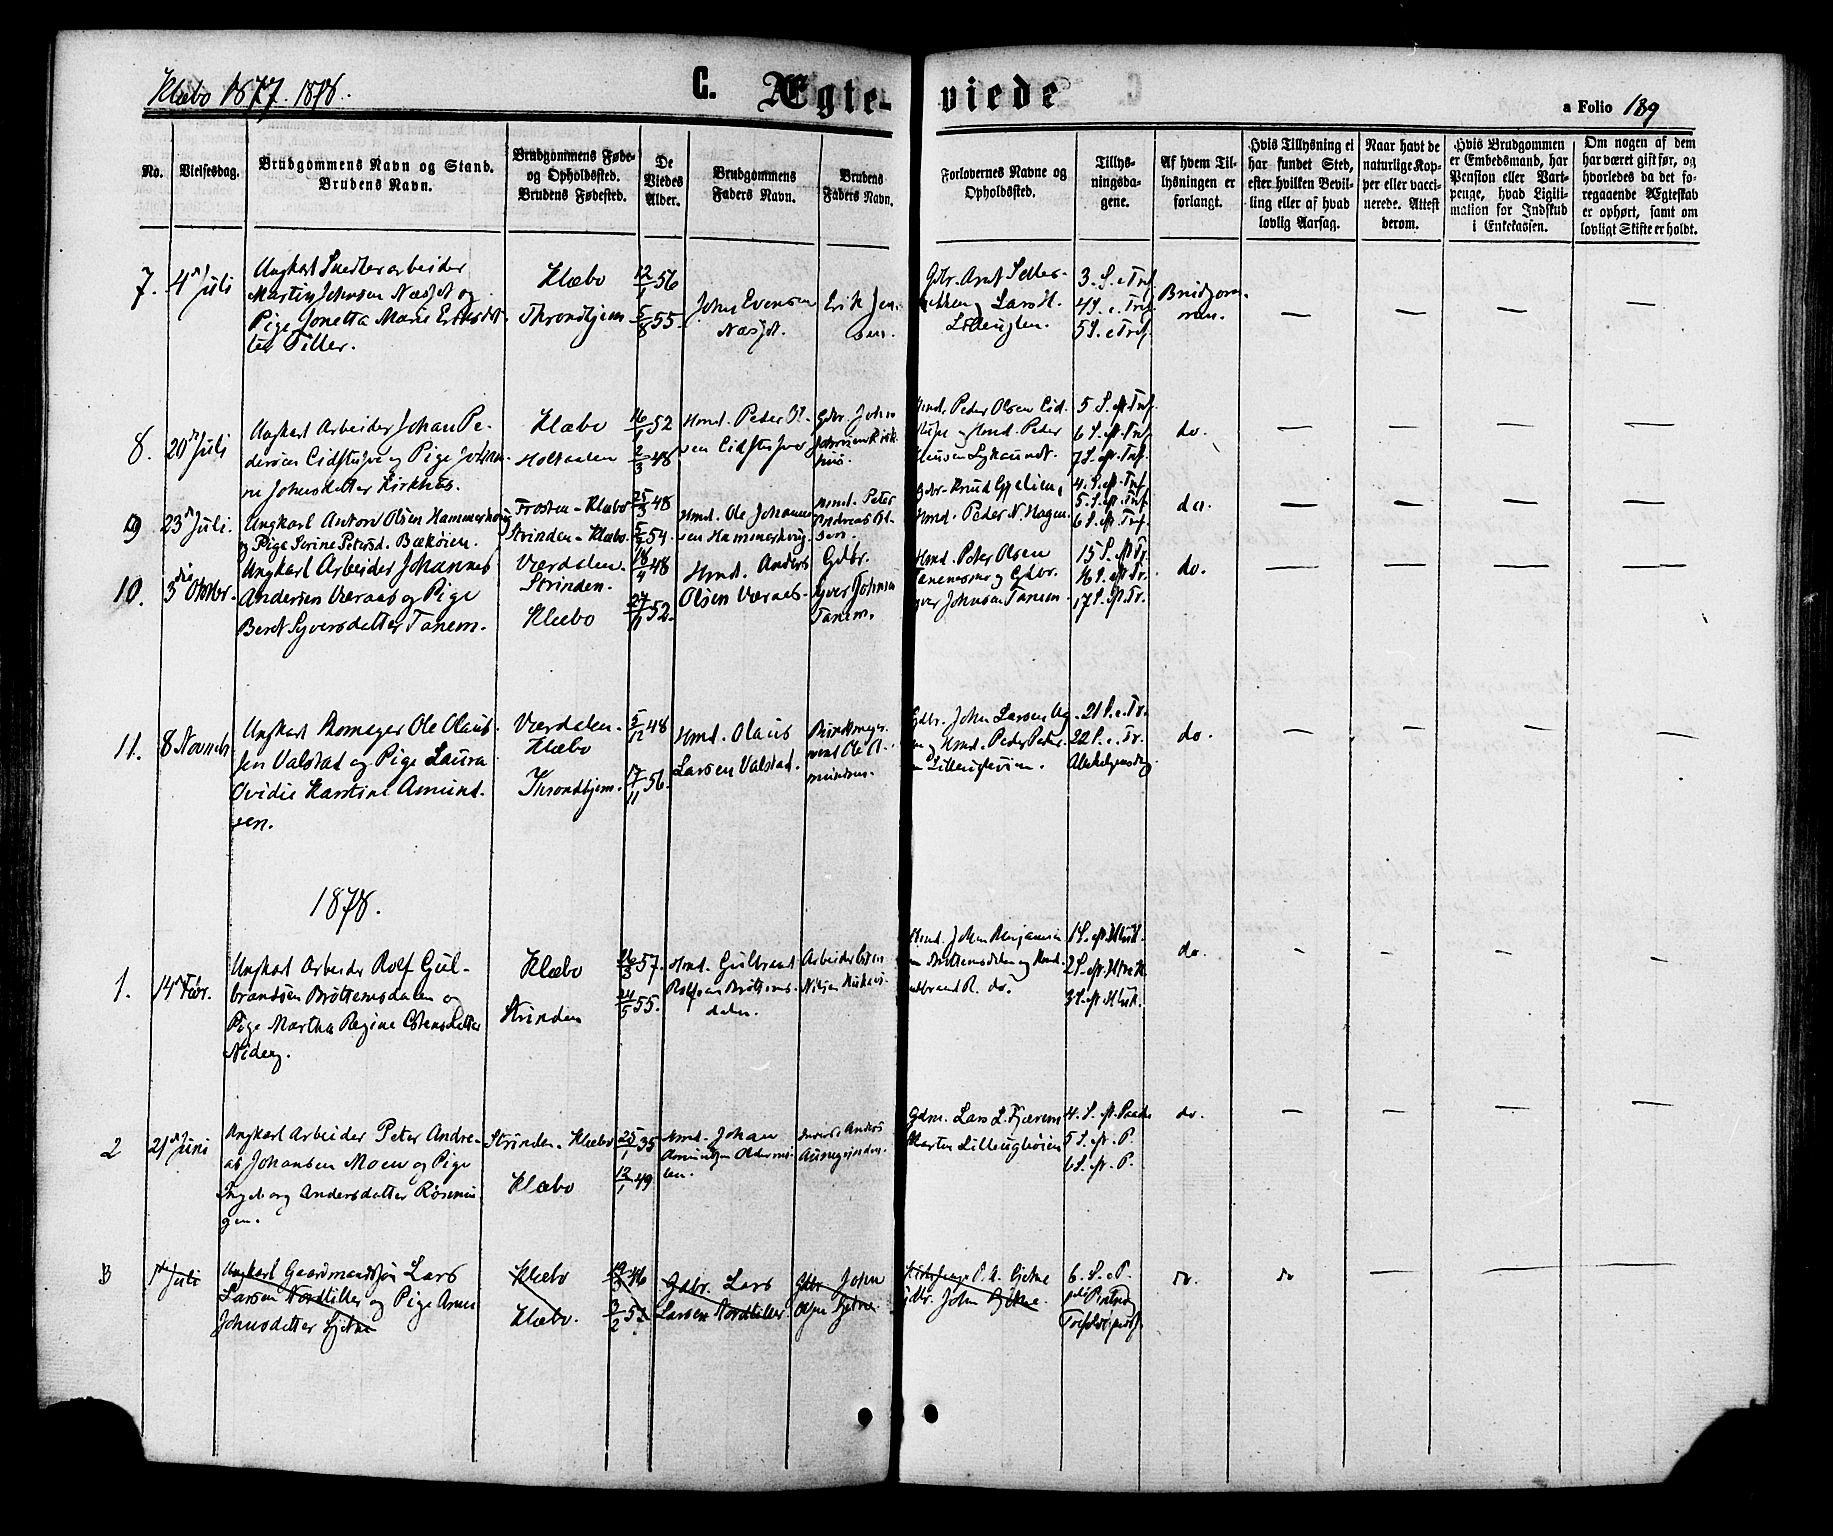 Klæbo 1877. 1878.
C. Ægte-
viede
a Folio 189
No.
Vielsesdag.
Brudgommens Navn og Stand.
Brudens Navn.
Brudgommens Føde-
og Opholdssted.
Brudens Fødested.
De
Viedes
Alder.
Brudgommens
Faders Navn.
Brudens
Faders Navn.
Forlovernes Navne og
Opholdssted.
Tillys-
ningsda-
gene.
Af hvem Til-
lysningen er
forlangt.
Hvis Tillysning ei
har fundet Sted,
efter hvilken Bevil-
ling eller af hvad
lovlig Aarsag.
Naar havt de
naturlige Kop-
per eller vacci-
nerede. Attest
derom.
Hvis Brudgommen
er Embedsmand, har
Pension eller Vart-
penge, hvad Ligiti-
mation for Indskud
i Enkekassen.
Om nogen af dem
har været gift før, og
hvorledes da det fo-
regaaende Ægteskab
er ophørt, samt om
lovligt Skifte er holdt.
7.
4de Juli
Ungkarl Snedkerarbeider
Martin Johnsen Næsset og
Pige Jonetta Marie Eriksdat-
ter Tiller.
Klæbo
Throndhjem
12/1 56
5/8 55
John Evensen
Næsset.
Erik Jen-
sen.
3. S. e Trf.
4 S. e. Trf.
5 S. e Trf.
Brudgom-
men.
8.
20de Juli
Ungkarl Arbeider Johan Pe-
dersen Eidstu og Pige Johan-
ne Johnsdatter Kirkhus.
Klæbo
Holtaalen
16/1 52
2/3 48
Hmd. Peder Ol-
Gdbr. John
Hmd. Peder Olsen Eid-
5 S. eft Trf.
6 S. eft. Trf.
7 S. eft. Trf.
do.
9
23de Juli.
Ungkarl Anton Olsen Hammerhaug
og Pige Serine Petersd. Bækøien.
Frosten - Klæbo
Strinden - Klæbo.
25/3 48
5/2 54.
Hmd. Ole Johann-
sen Hammerhaug.
Hmd. Peter
Andreas Ol-
sen.
Hmd. Peder N. Hagen.
4. S. eft Trf.
5. S. eft. Trf.
6 S. eft. Trf.
do
10.
5die Oktbr.
Ungkarl Arbeider Johannes
Andersen Væraas og Pige
Beret Syversdatter Tanem.
Værdalen.
Strinden.
Klæbo
18/4 48
27/11 52.
Hmd. Anders
Olsen Væraas.
Gdbr.
Syver Johnsen
Tanem.
Hmd. Peter Olsen
Tanemsmo og Gdbr.
Syver Johnsen Tanem.
15 S. eft Tr.
16 S. eft. Tr.
17 S. eft. Tr.
do.
11.
8 Novmbr
Ungkarl Skomager Ole Olaus-
sen Valstad og Pige Laura
Ovidie Karstine Asmund-
sen.
Værdalen.
Klæbo
Throndhjem.
5/12 48
17/11 56.
Hmd. Olaus
Larsen Valstad.
Gdbr. John Larsen
og Hmd. Peder Peder-
21 S. e. Tr.
22 S. e. Tr.
do.
1878.
1.
14de Febr.
Ungkarl Arbeider Rolf Gul-
brandsen Brøttemsdalen og
Pige Martha Regine Estensdatter
Klæbo
Strinden
26/3 57.
24/5 55.
Hmd. Gulbrand
Rolfsen Brøttems-
dalen.
Arbeider Esten
Nilsen
Hmd. John Benjamin-
sen Brøttemsdalen og Hmd.
Gulbrand R. do.
do.
2
21de Juni
Ungkarl Arbeider Peter Andre-
as Johansen Moen og Pige
Ingeborg Andersdatter
Strinden - Klæbo
Klæbo
25/1 35
12/1 49
Hmd. Johan
Anders
Gdm. Lars L. Fjærem
4. S. eft. Paaske
5 S. eft. P.
6 S. eft. P.
do.
3
1ste Juli
Ungkarl Gaardmandssøn Lars
Larsen Nordtiller og Pige Anne
Johnsdatter Gjetne
Klæbo
Klæbo.
46
3/2 53
Gdbr. Lars
Larsen Nordtiller.
Gdbr John
Olsen Gjetne
Kirkesanger P. A. Gjetne
Gdbr. John Gjetne.
6. S. e P.
do.
do